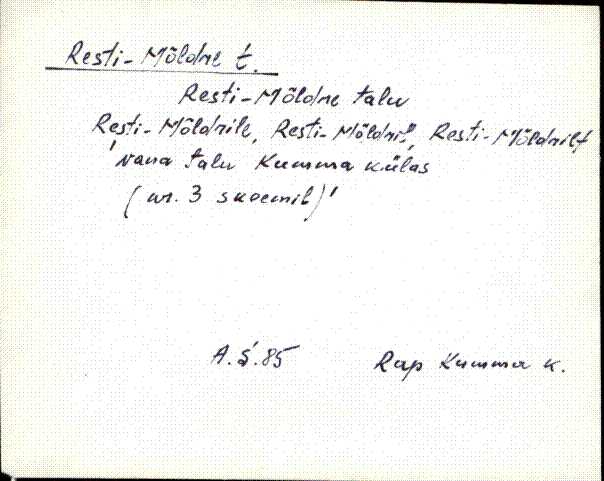 Resti-Mõldre t.
Resti-Mõldre talu
Resti-Mõldrile, Resti-Mõldril, Resti-Mõldrilt
'vana talu Kumma külas
(nr. 3 skeemil)'
A.Š.85 Rap Kumma k.